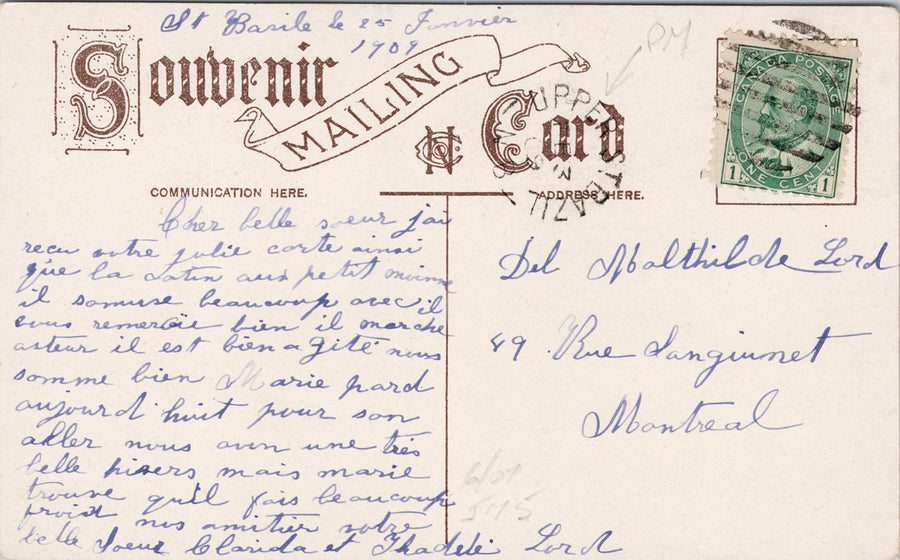 St Basile le 25 Janvier
1909
Souvenir
MAILING
Card
UPPER ST BAZIL
PM
COMMUNICATION HERE.
ADDRESS HERE.
CANADA POSTAGE
ONE CENT
1 1
Cher belle soeur j'ai
recu votre jolie carte ainsi
que la catin aux petit moinne
il samuse beaucoup avec il
vous remercie bien il marche
asteur il est bien agité nous
somme bien Marie pard
aujourd'huit pour son
aller nous avon une très
belle hivers mais marie
trouve qu'il fais beaucoup
froid nos amitier votre
belle Soeur Clarida et Thadelé Lord
Del Malthilde Lord
49 Rue Sanguinet
Montreal
6/01
545